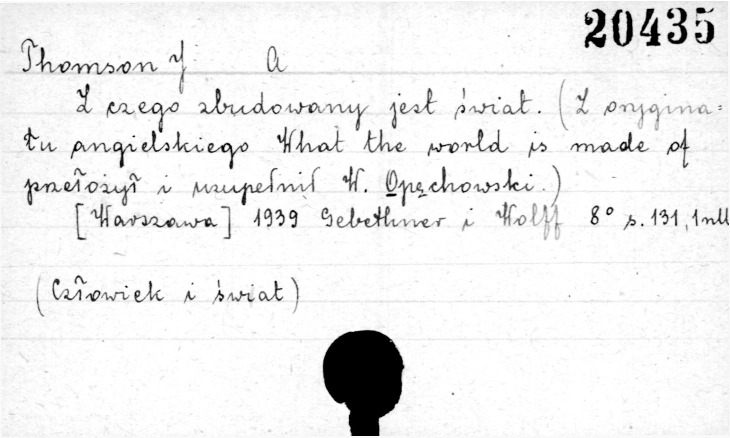 20435
Thomson J A
Z czego zbudowany jest świat. (Z orygina=
łu angielskiego What the world is made of
przełożył i uzupełnił W. Opęchowski.)
[Warszawa] 1939 Gebethner i Wolff 8° s. 131, 1 nll
(Człowiek i świat)